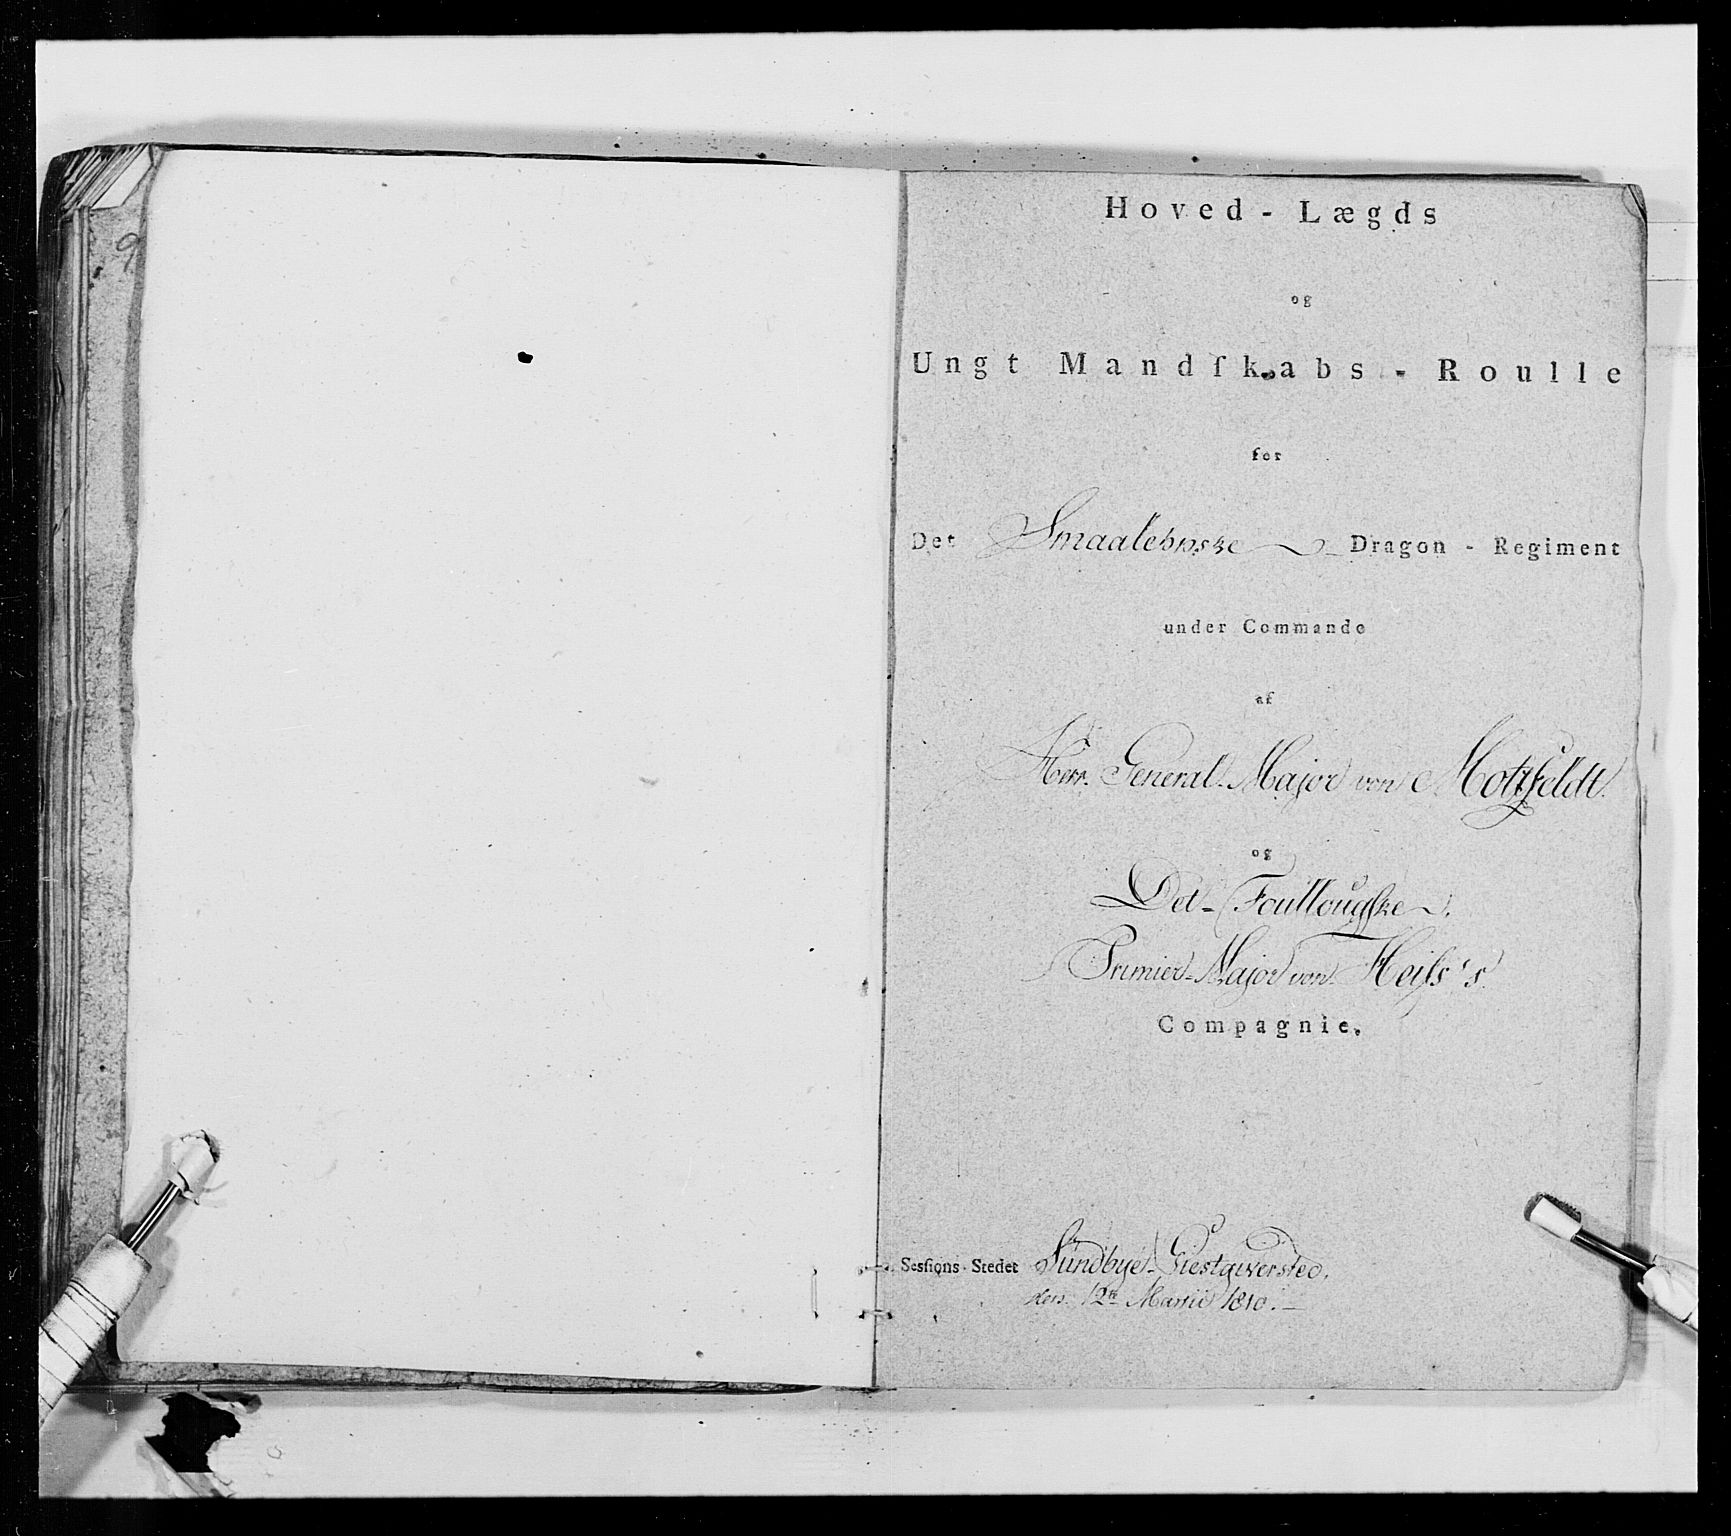 9
Hoved - Lægds
og
Ungt Mandſkabs - Roulle
for
Det Smaalehnske Dragon - Regiment
under Commando
af
Herr General-Major von Motzfeldt.
og
Det Foullougſke
Primier-Major von Heiſs's
Compagnie.
Sesſions-Stedet Sundbye-Giestgiversted,
den 12te Martii 1810.